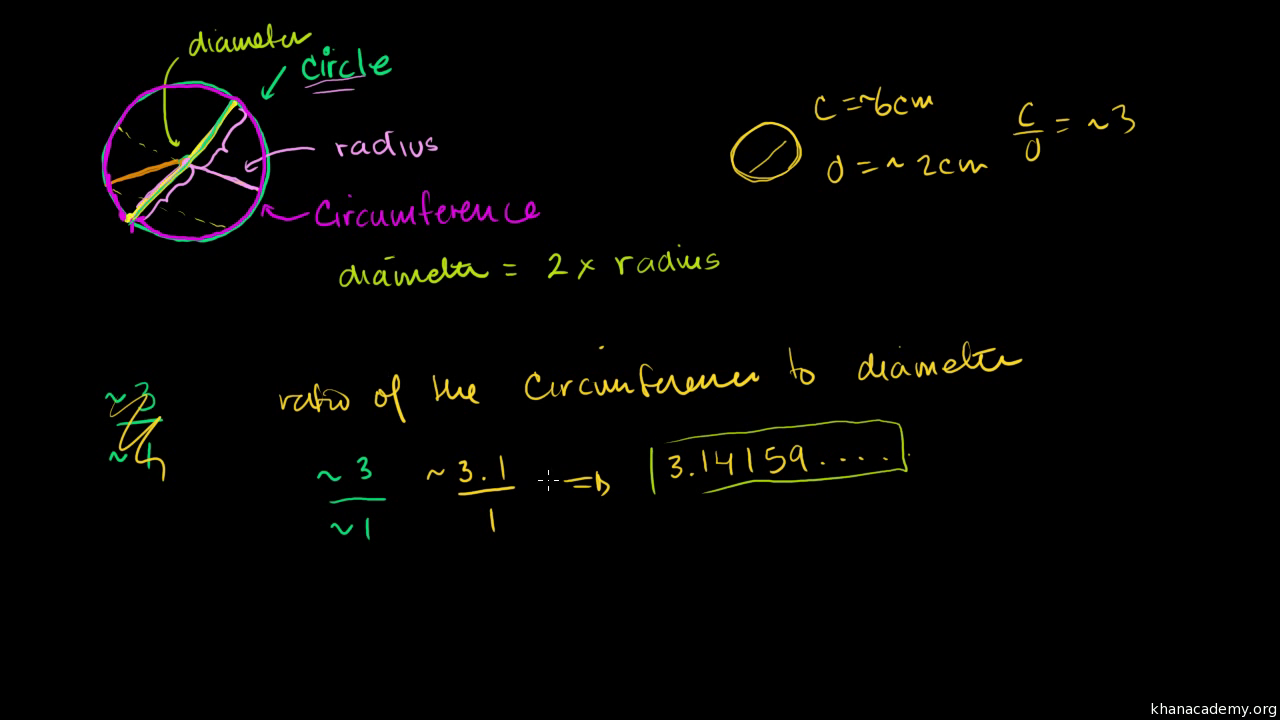 diameter
circle
radius
circumference
diameter = 2 x radius
c = ~6cm
d = ~ 2cm
c/d = ~3
~3
~1
ratio of the circumference to diameter
~ 3
~ 1
~ 3.1
1
⇒
3.14159....
khanacademy.org